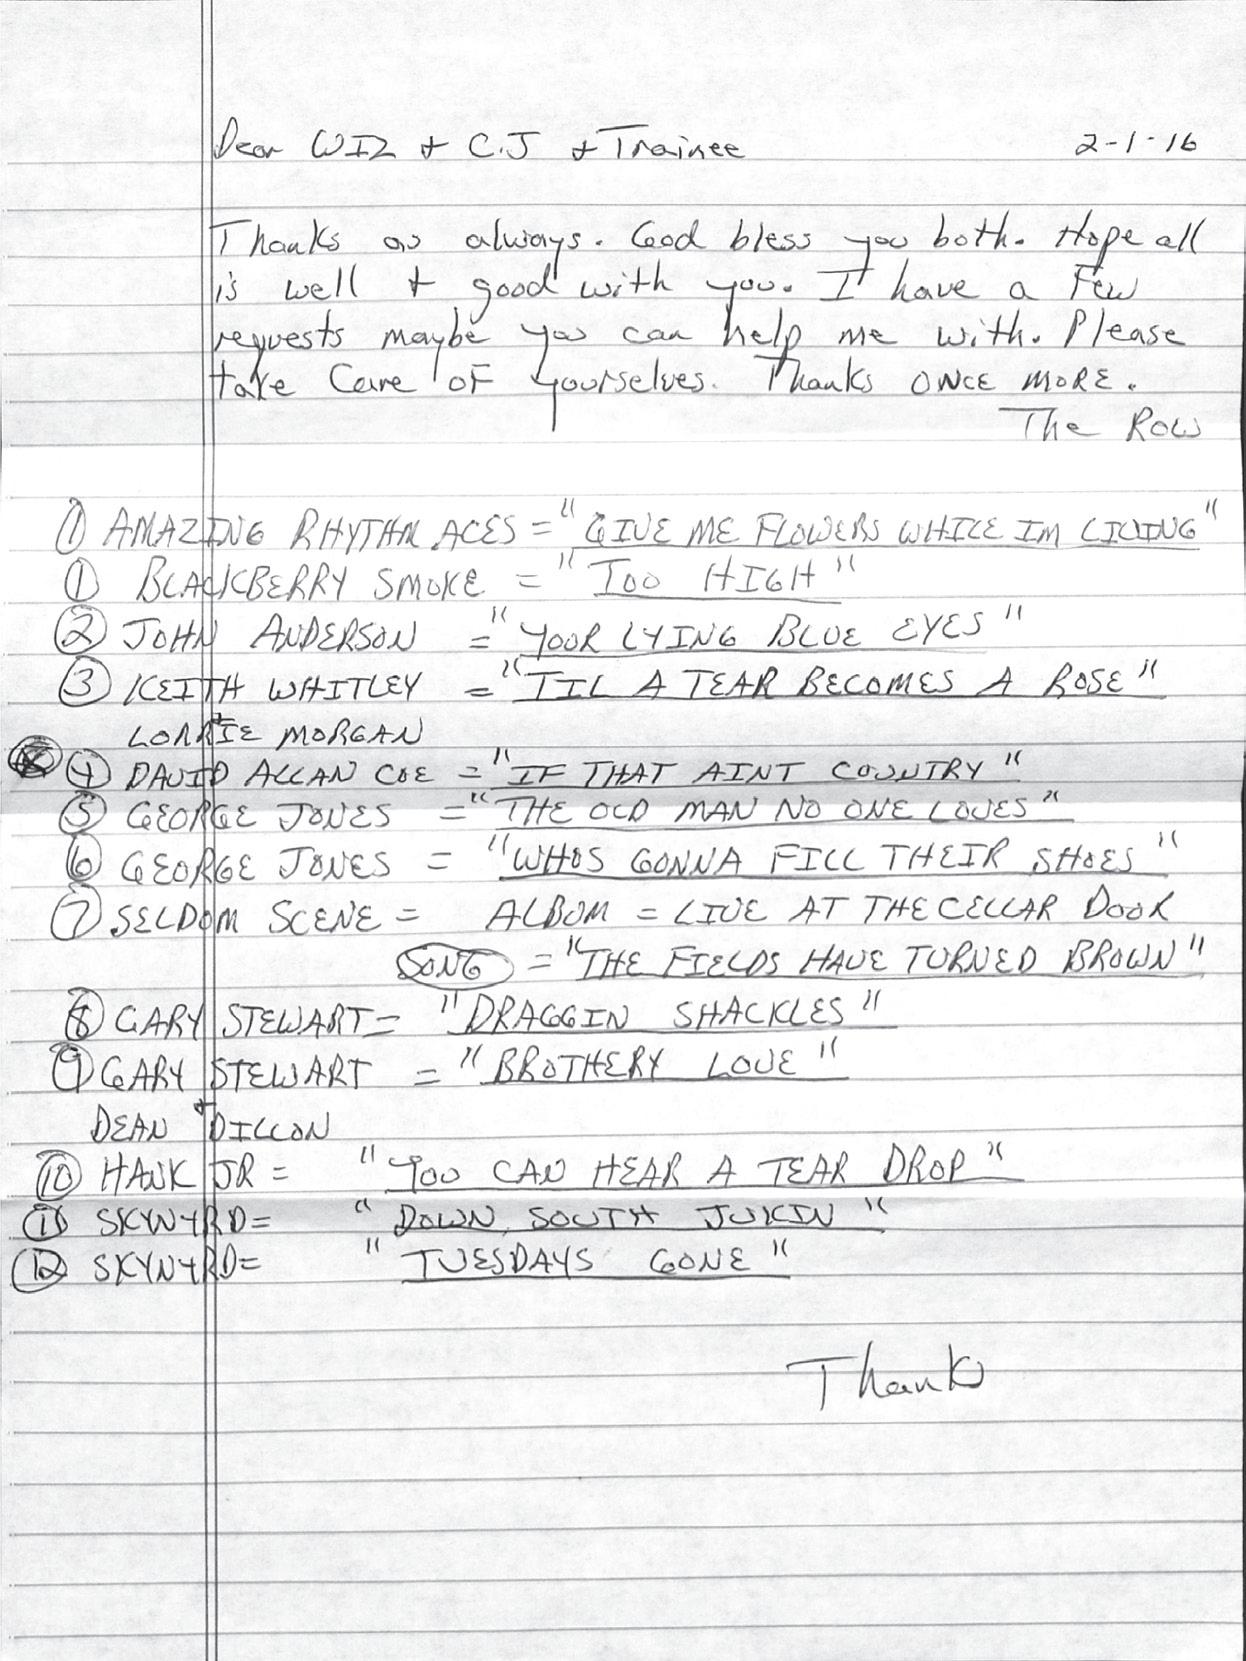 Dear WIZ + C.J + Trainee 2-1-16
Thanks as always. God bless you both. Hope all
is well + good with you. I have a Few
requests maybe you can help me with. Please
take Care OF yourselves. Thanks ONCE MORE.
The Row
① AMAZING RHYTHM ACES = "GIVE ME FLOWERS WHILE IM LIVING"
① BLACKBERRY SMOKE = "TOO HIGH"
② JOHN ANDERSON = "YOUR LYING BLUE EYES"
③ KEITH WHITLEY = "TIL A TEAR BECOMES A ROSE"
+
LORRIE MORGAN
④ DAVID ALLAN COE = "IF THAT AINT COUNTRY"
⑤ GEORGE JONES = "THE OLD MAN NO ONE LOVES"
⑥ GEORGE JONES = "WHOS GONNA FILL THEIR SHOES"
⑦ SELDOM SCENE = ALBUM = LIVE AT THE CELLAR DOOR
SONG = "THE FIELDS HAVE TURNED BROWN"
⑧ GARY STEWART = "DRAGGIN SHACKLES"
⑨ GARY STEWART = "BROTHERY LOVE"
+
DEAN DILLON
⑩ HANK JR = "YOU CAN HEAR A TEAR DROP"
⑪ SKYNYRD = "DOWN SOUTH JUKIN"
⑫ SKYNYRD = "TUESDAYS GONE"
Thanks